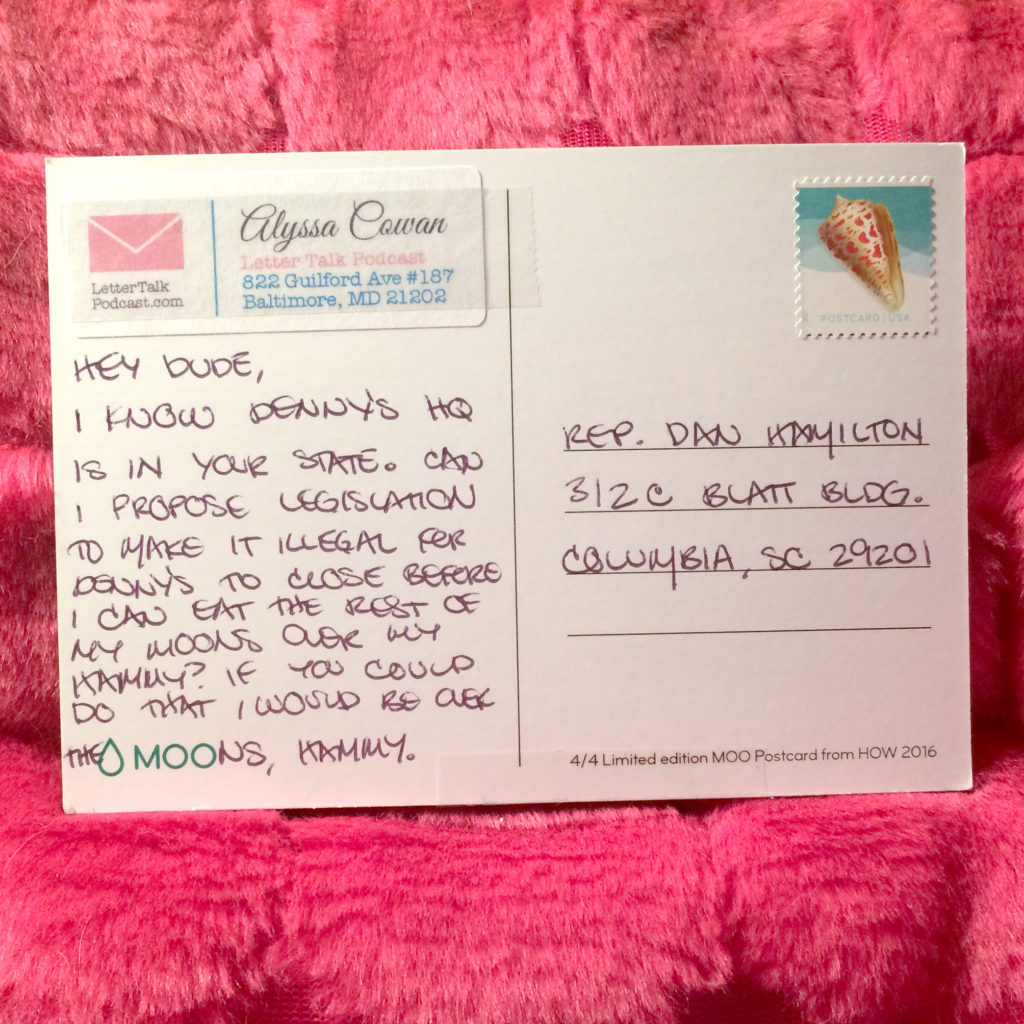 Alyssa Cowan
Letter Talk Podcast
822 Guilford Ave #187
Baltimore, MD 21202
LetterTalk
Podcast.com
POSTCARD | USA
HEY DUDE,
I KNOW DENNY'S HQ
IS IN YOUR STATE. CAN
I PROPOSE LEGISLATION
TO MAKE IT ILLEGAL FOR
DENNY'S TO CLOSE BEFORE
I CAN EAT THE REST OF
MY MOONS OVER MY
HAMMY? IF YOU COULD
DO THAT I WOULD BE OVER
THE MOONS, HAMMY.
REP. DAN HAMILTON
312C BLATT BLDG.
COLUMBIA, SC 29201
4/4 Limited edition MOO Postcard from HOW 2016